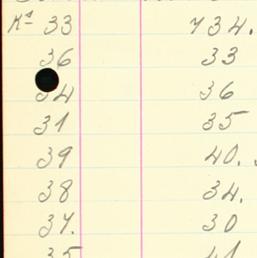 Ks 33 734.
36 33
34 36
31 35
39 40.
38 34.
37. 30
35 41